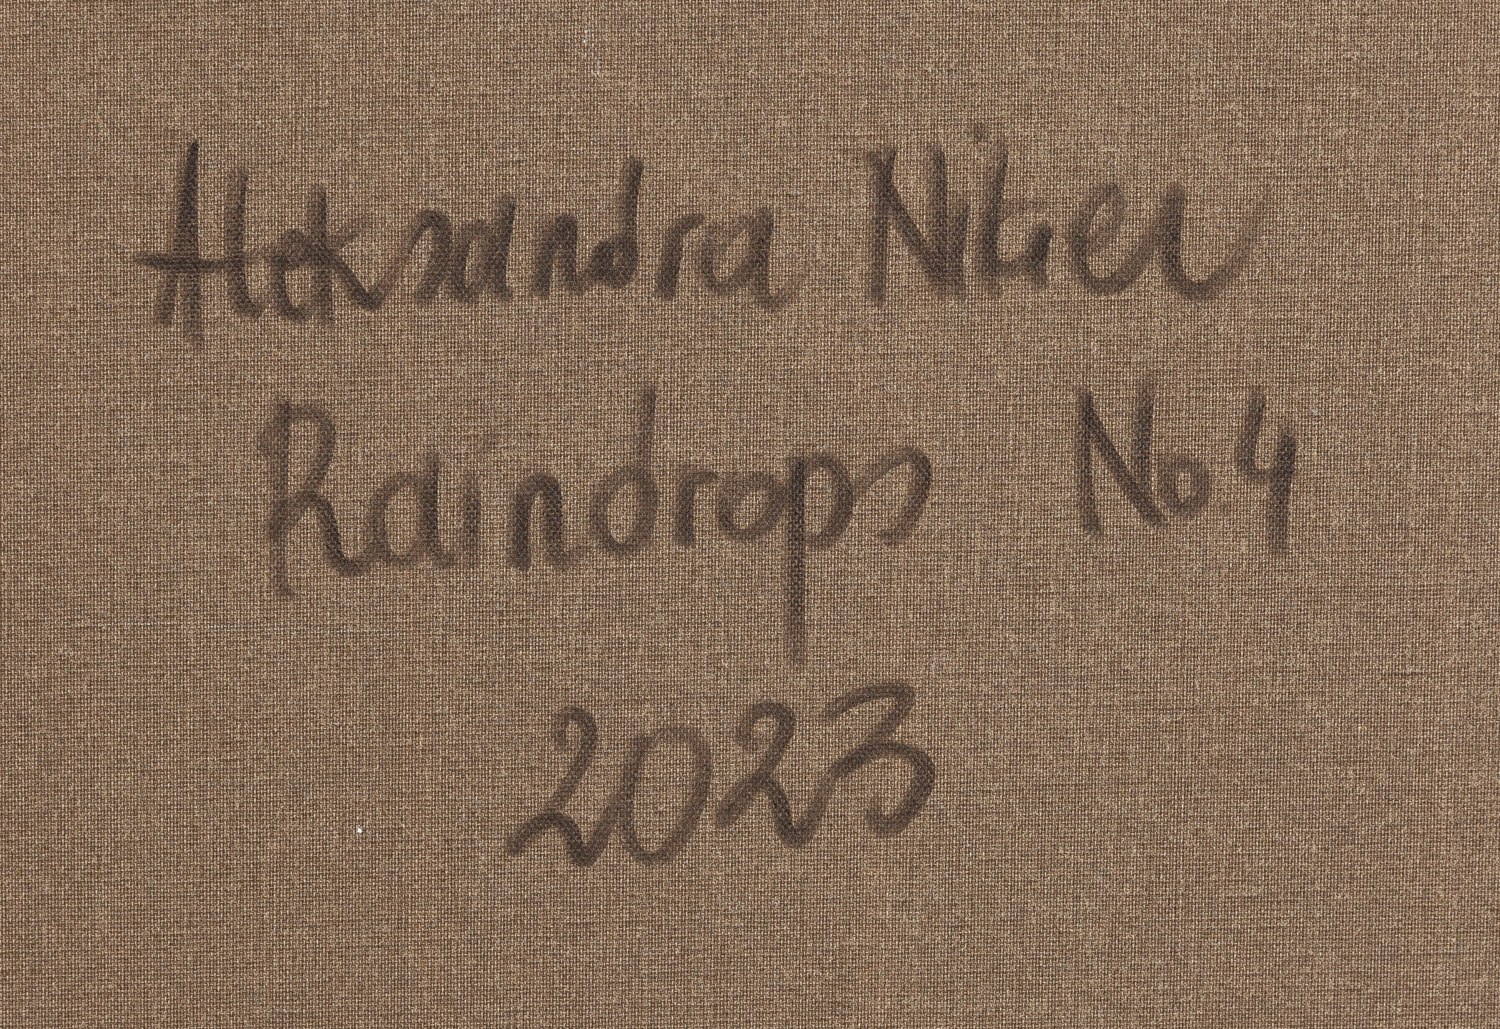 Aleksandra
Raindrops No 4
2023